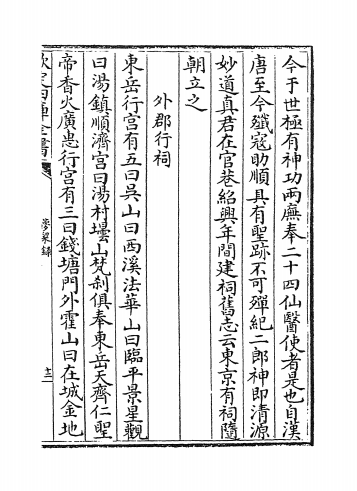 今于世極有神功兩廡奉二十四仙醫使者是也自漢
唐至今殱寇助順具有聖跡不可殫紀二郎神即清源
妙道真君在官巷紹興年間建祠舊志云東京有祠隨
朝立之
外郡行祠
東岳行宮有五曰吴山曰西溪法華山曰臨平景星觀
曰湯鎮順濟宮曰湯村壜山梵刹俱奉東岳天齊仁聖
帝香火廣惠行宮有三曰錢塘門外霍山曰在城金地
欽定四庫全書
夢粱錄
十三